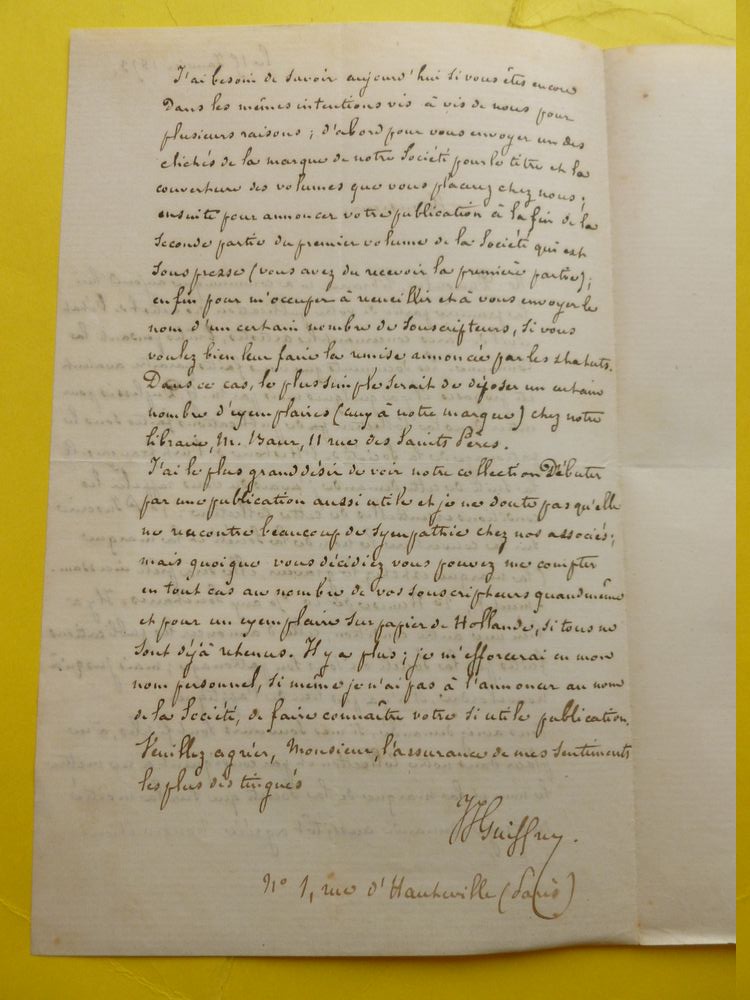 J'ai besoin de savoir aujourd'hui si vous êtes encore
Dans les mêmes intentions vis à vis de nous pour
plusieurs raisons ; d'abord pour vous envoyer un des
clichés de la marque de notre Société pour le titre et la
couverture des volumes que vous placerez chez nous ;
ensuite pour annoncer votre publication à la fin de la
seconde partie du premier volume de la Société qui est
sous presse (vous avez du recevoir la première partie) ;
enfin pour m'occuper à recueillir et à vous envoyer le
nom d'un certain nombre de souscripteurs, si vous
voulez bien leur faire la remise annoncée par les statuts.
Dans ce cas, le plus simple serait de déposer un certain
nombre d'exemplaires (avec à notre marque) chez notre
libraire, M. Baur, 11 rue des Saints Pères.
J'ai le plus grand désir de voir notre collection Débuter
par une publication aussi utile et je ne doute pas qu'elle
ne rencontre beaucoup de sympathie chez nos associés ;
mais quoique vous décidiez vous pouvez me compter
en tout cas au nombre de vos souscripteurs quand même
et pour un exemplaire sur papier de Hollande, si tous ne
sont déjà retenus. Il y a plus ; je m'efforcerai en mon
nom personnel, si même je n'ai pas à l'annoncer au nom
de la Société, de faire connaître votre si utile publication.
Veuillez agréer, Monsieur, l'assurance de mes sentiments
les plus distingués
JJ Guiffrey.
N° 1, rue d'Hauteville (Paris)